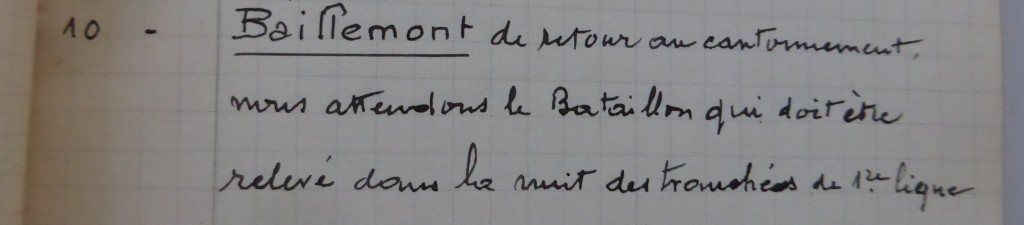 10 - Baillemont de retour au cantonnement,
nous attendons le Bataillon qui doit être
relevé dans la nuit des tranchées de 1re ligne